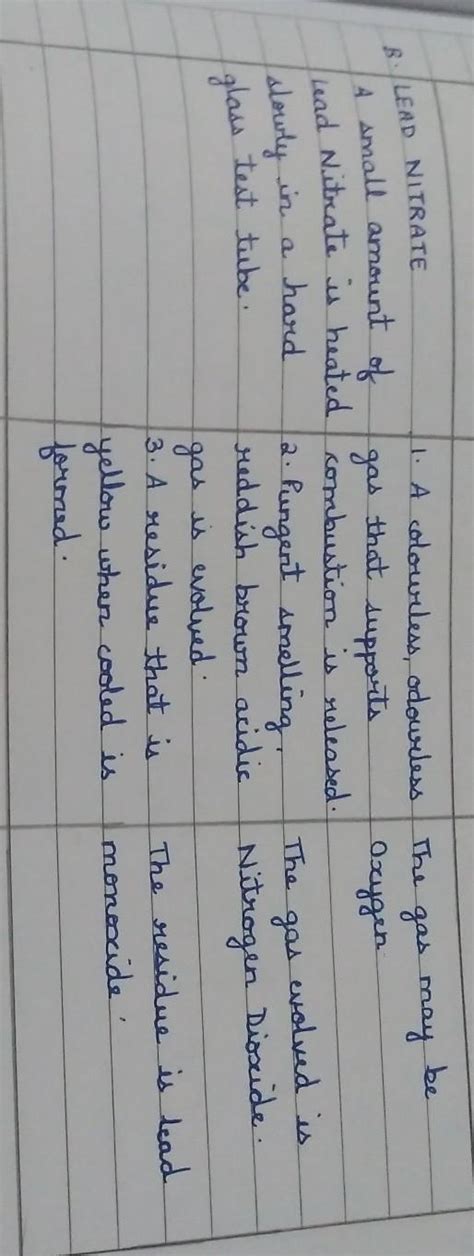 B. LEAD NITRATE
A small amount of
lead Nitrate is heated
slowly in a hard
glass test tube.
1. A colourless, odourless
gas that supports
combustion is released.
2. Pungent smelling,
reddish brown acidic
gas is evolved.
3. A residue that is
yellow when cooled is
formed.
The gas may be
Oxygen
The gas evolved is
Nitrogen Dioxide.
The residue is lead
monoxide.